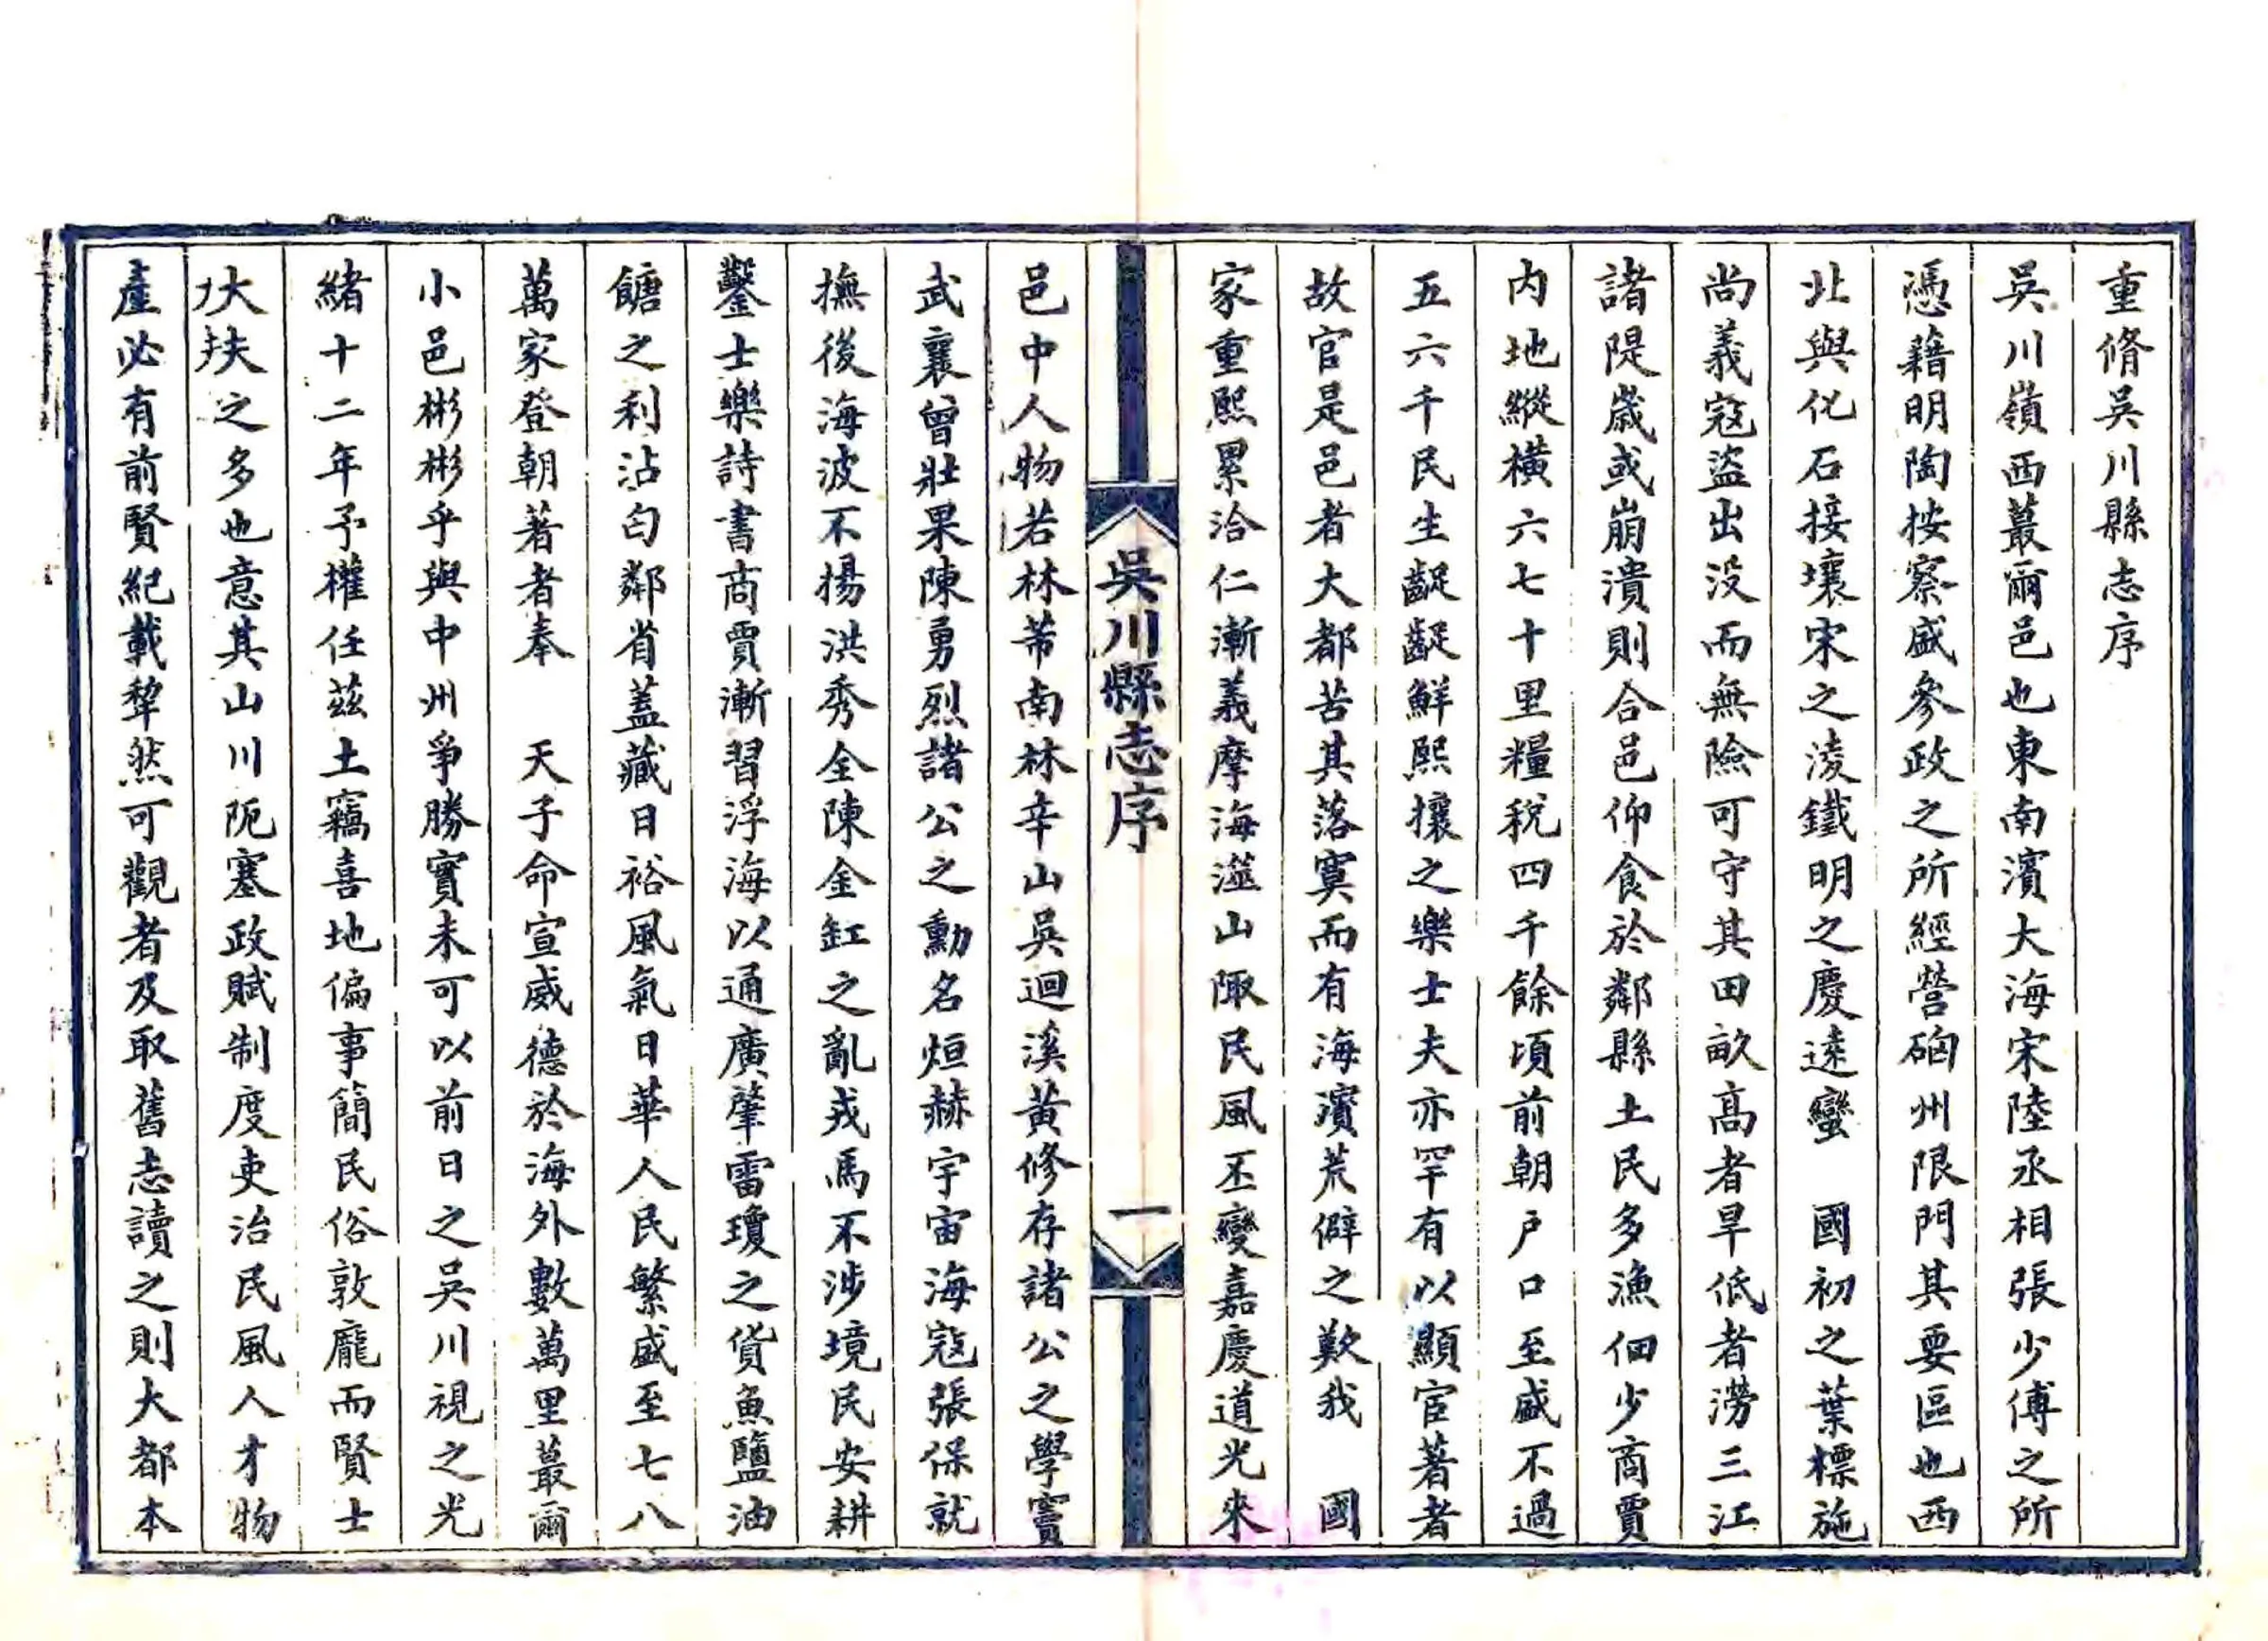 重脩吳川縣志序
吳川嶺西蕞爾邑也東南濱大海宋陸丞相張少傅之所
憑藉明陶按察盛參政之所經營硇州限門其要區也西
北與化石接壤宋之淩鐵明之慶遠蠻　國初之葉標施
尚義寇盜出没而無險可守其田畝高者旱低者澇三江
諸隄歲或崩潰則合邑仰食於鄰縣土民多漁佃少商賈
内地縱橫六七十里糧税四千餘頃前朝户口至盛不過
五六千民生齪齪鮮熙攘之樂士夫亦罕有以顯宦著者
故官是邑者大都苦其落寞而有海濱荒僻之歎我　國
家重熙累洽仁漸義摩海澨山陬民風丕變嘉慶道光來
吳川縣志序
一
邑中人物若林芾南林辛山吳迴溪黃修存諸公之學竇
武襄曾壯果陳勇烈諸公之勳名烜赫宇宙海寇張保就
撫後海波不揚洪秀全陳金缸之亂戎馬不涉境民安耕
鑿士樂詩書商賈漸習浮海以通廣肇雷瓊之貨魚鹽油
餹之利沾匄鄰省蓋藏日裕風氣日華人民繁盛至七八
萬家登朝著者奉　天子命宣威德於海外數萬里蕞爾
小邑彬彬乎與中州爭勝實未可以前日之吳川視之光
緒十二年予權任茲土竊喜地偏事簡民俗敦龐而賢士
大夫之多也意其山川阨塞政賦制度吏治民風人才物
產必有前賢紀載犂然可觀者及取舊志讀之則大都本